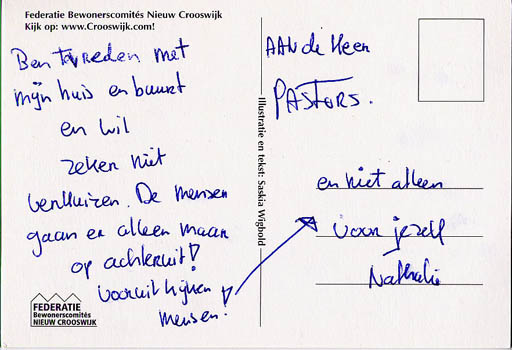 Federatie Bewonerscomités Nieuw Crooswijk
Kijk op: www.Crooswijk.com!
Ben tevreden met
mijn huis en buurt
en wil
zeker niet
verhuizen. De mensen
gaan er alleen maar
op achteruit!
Vooruit kijken
mensen!
FEDERATIE
Bewonerscomités
NIEUW CROOSWIJK
Illustratie en tekst: Saskia Wigbold
AAN de Heer
PASTORS.
en niet alleen
voor jezelf
Nathalie